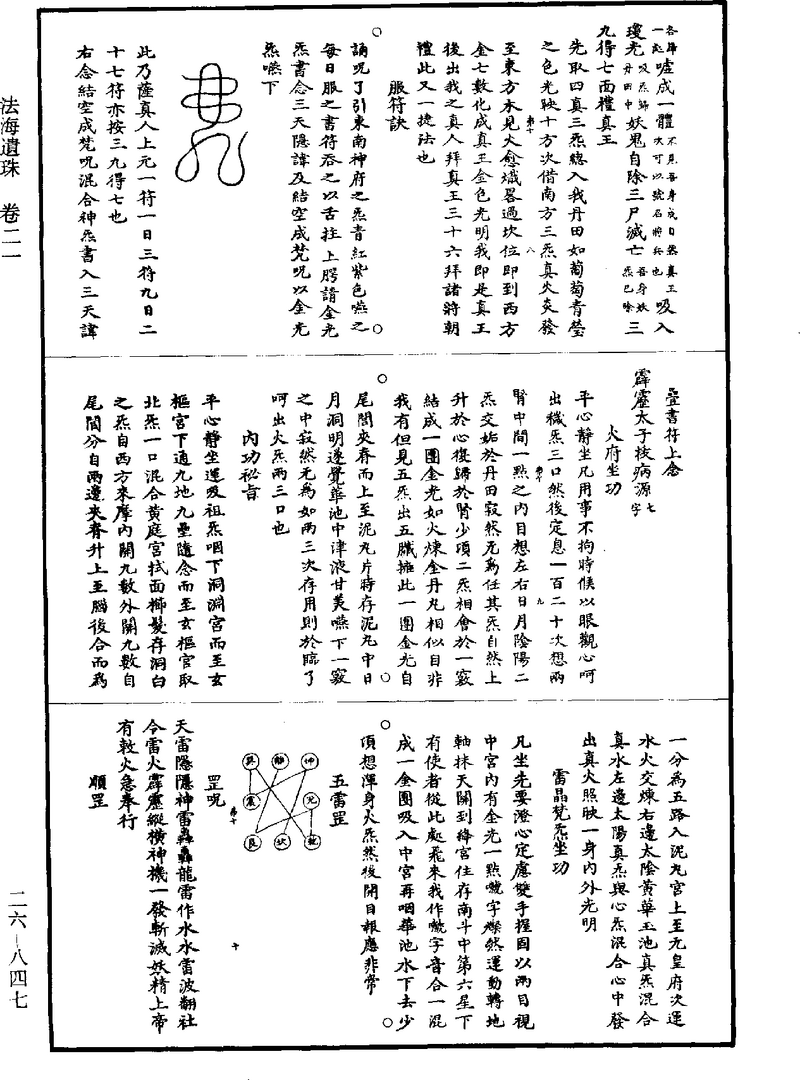 法海遺珠　卷二一
各歸一起噓成一體不見吾身或日然真王次可以號召將兵也吸入
瓊光吸炁歸丹田中妖鬼自除三尸滅亡吾身妖炁已除三
九得七面禮真王
先取四真三炁總入我丹田如葡萄青瑩
之色光映十方次借南方三炁真火炎發
至東方木見火愈熾畧過坎位即到西方
金七數化成真王金色光明我即是真王
後出我之真人拜真王三十六拜諸將朝
禮此又一捷法也
服符訣
誦呪了引東南神府之炁青紅紫色嚥之
每日服之書符吞之以舌拄上腭請金光
炁書念三天隱諱及結空成梵呪以金光
炁嚥下
此乃薩真人上元一符一日三符九日二
十七符亦按三九得七也
右念結空成梵呪混合神炁書入三天諱
疊書符上念
霹靂太子按病源七字
火府坐功
平心靜坐凡用事不拘時候以眼觀心呵
出穢炁三口然後定息一百二十次想兩
腎中間一點之內目想左右日月陰陽二
炁交姤於丹田寂然无為任其炁自然上
升於心復歸於腎少頃二炁相會於一竅
結成一團金光如火煉金丹丸相似目非
我有但見五炁出五臟擁此一團金光自
尾閭夾脊而上至泥丸片時存泥丸中日
月洞明遂覺華池中津液甘美嚥下一竅
之中寂然无為如兩三次存用則於臨了
呵出火炁兩三口也
內功祕旨
平心靜坐運吸祖炁咽下洞淵宮而至玄
樞宮下通九地九壘隨念而至玄樞宮取
北炁一口混合黃庭宮拭面櫛髮存洞白
之炁自西方來摩內關九數外關九數自
尾閭分自兩邊夾脊升上至腦後合而為
一分為五路入泥丸宮上至九皇府次運
水火交煉右邊太陰黃華玉池真炁混合
真水左邊太陽真炁與心炁混合心中發
出真火照映一身內外光明
雷晶梵炁坐功
凡坐先要澄心定慮雙手握固以兩目視
中宮內有金光一點囕字燦然運動轉地
軸抹天關到絳宮住存南斗中第六星下
有使者從此處飛來我作囕字音合一混
成一金團吸入中宮再咽華池水下去少
頃想渾身火炁然後開目報應非常
五雷罡
神　離　巽
兌　震
乾　坎　艮
罡呪
天雷隱隱神雷轟轟龍雷作水水雷波翻社
令雷火霹靂縱橫神機一發斬滅妖精上帝
有敕火急奉行
順罡
二六－八四七